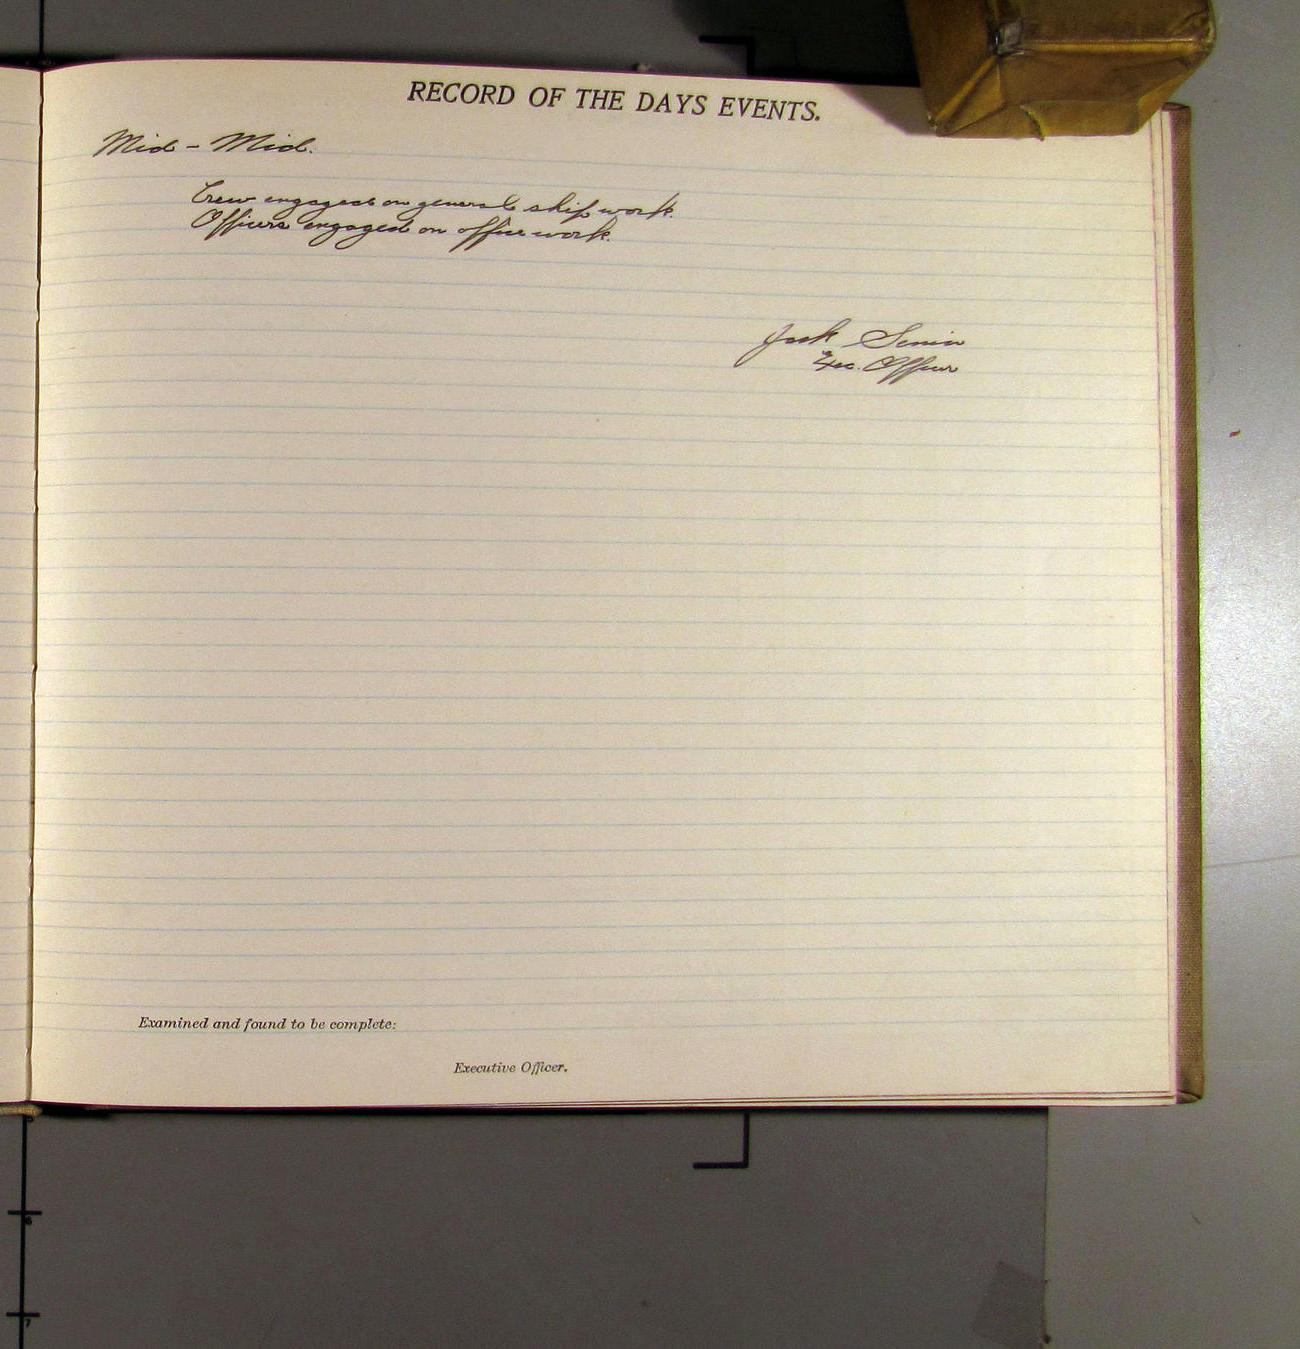 RECORD OF THE DAYS EVENTS.
Mid - Mid.
Crew engaged on general ship work.
Officers engaged on office work.
Jack Senior
Exec. Officer
Examined and found to be complete:
Executive Officer.
6
7